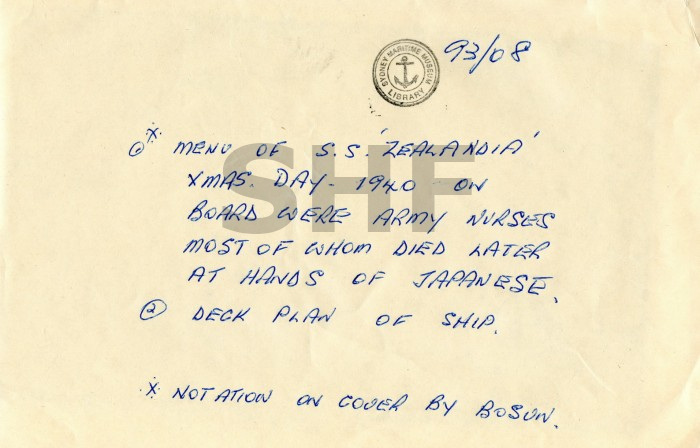 93/08
SYDNEY MARITIME MUSEUM LIBRARY
SHF
① * MENU OF S.S. 'ZEALANDIA'
XMAS. DAY - 1940 - ON
BOARD WERE ARMY NURSES
MOST OF WHOM DIED LATER
AT HANDS OF JAPANESE.
② DECK PLAN OF SHIP.
* NOTATION ON COVER BY BOSUN.